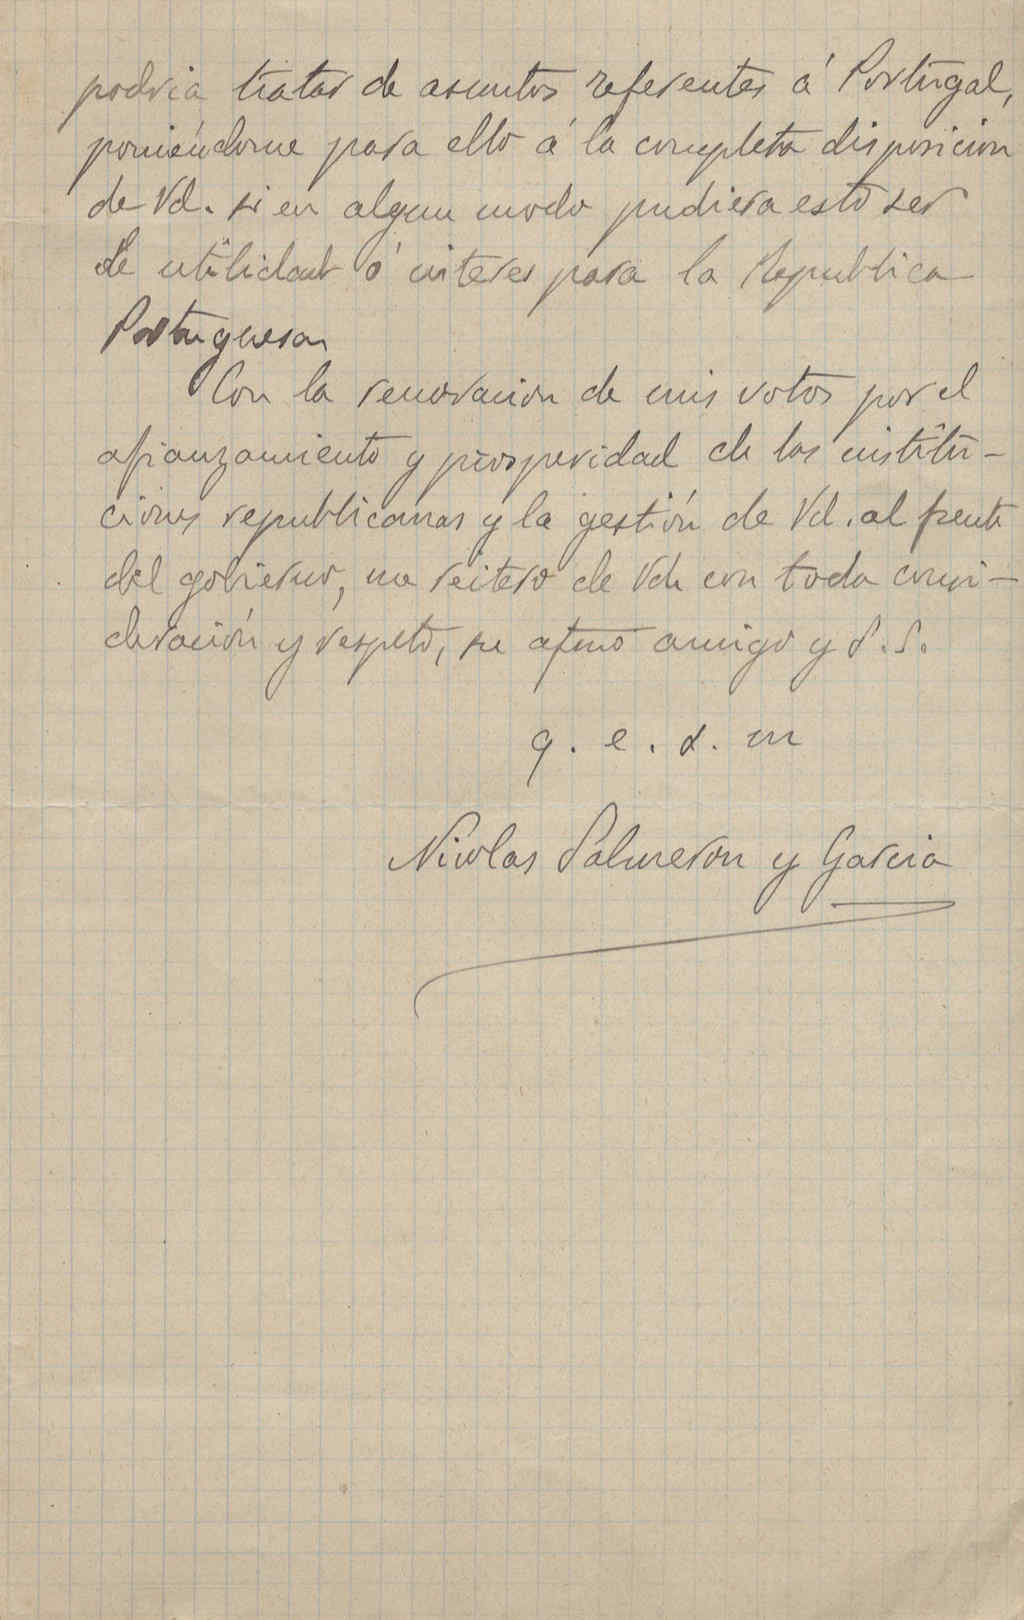 podria tratar de asuntos referentes á Portugal,
poniéndome para ello á la completa disposicion
de Vd. si en algun modo pudiera esto ser
de utilidad ó interes para la Republica
Portuguesa
Con la renovacion de mis votos por el
afianzamiento y prosperidad de las institu-
ciones republicanas y la gestión de Vd. al frente
del gobierno, me reitero de Vd. con toda consi-
deración y respeto, su afmo amigo y S. S.
q. e. s. m
Nicolas Salmeron y Garcia